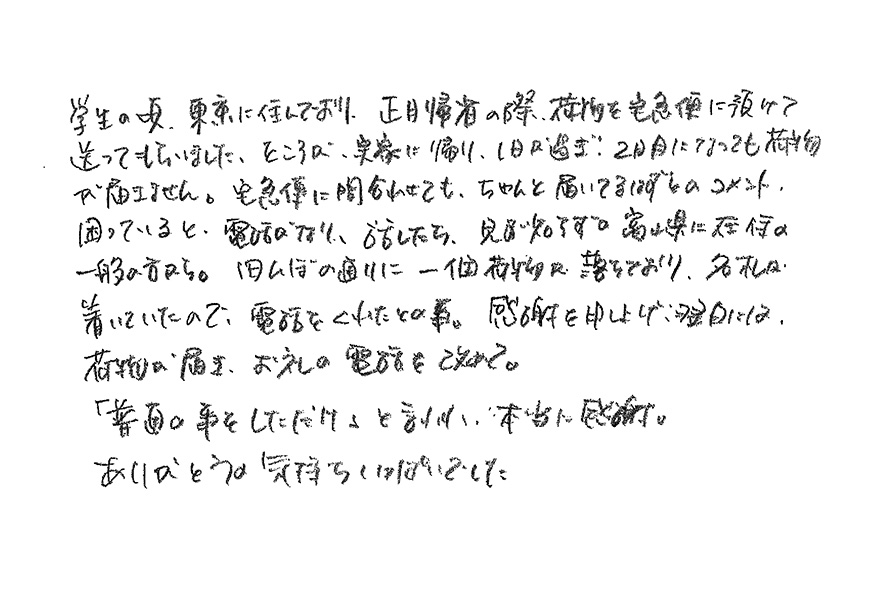 学生の頃、東京に住んでおり、正月帰省の際、荷物を宅急便に預けて
送ってもらいました、ところが、実家に帰り、1日が過ぎ、2日目になっても荷物
が届きません。宅急便に問合わせても、ちゃんと届いてるはずとのコメント、
困っていると、電話がなり、話したら、見ず知らずの富山県に在住の
一般の方から。田んぼの通りに一個荷物が落ちており、名札が
着いていたので、電話をくれたとの事。感謝を申し上げ、翌日には、
荷物が届き、お礼の電話を改めて。
「普通の事をしただけ」と言われ、本当に感謝。
ありがとうの気持ちいっぱいでした